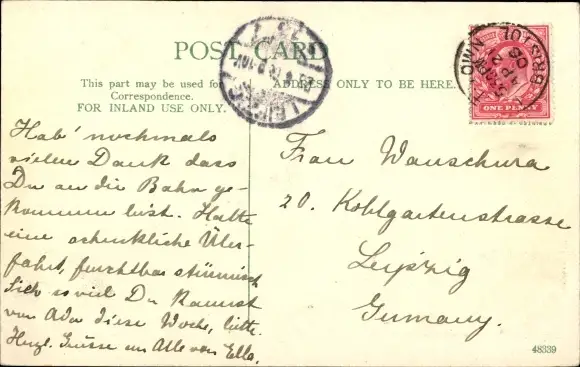 POST CARD
This part may be used for
Correspondence.
FOR INLAND USE ONLY.
ADDRESS ONLY TO BE HERE.
BRISTOL
ONE PENNY
LEIPZIG
Hab' nochmals
vielen Dank dass
Du an die Bahn ge-
kommen bist. Hatte
eine schenkliche Über-
fahrt, furchtbar stürmisch
Sieh so viel Du kannst
von Ada diese Woche, bitte.
Herzl. Grüsse an Alle von Ella.
Frau Wanschura
20. Kohlgartenstrasse
Leipzig
Germany.
48339